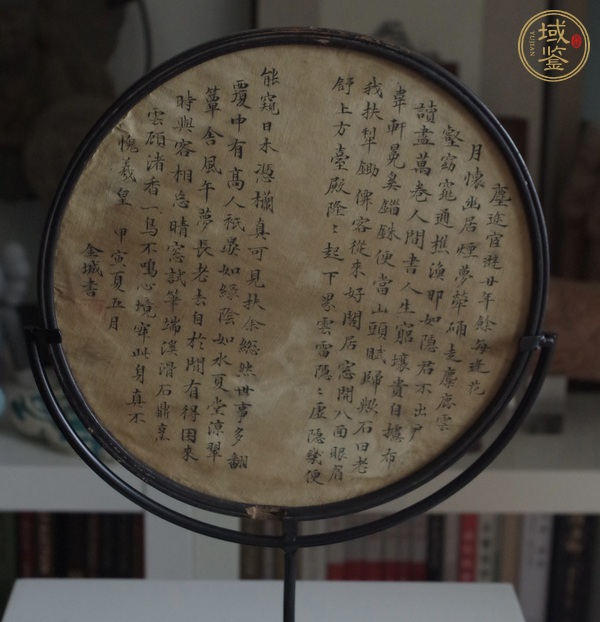 塵途宦遊廿年餘每逢花
月懷幽居煙夢犖确走麋鹿雲
壑窈窕通樵漁那如隱君不出戶
讀盡萬卷人間書人生窮壤貴自據布
韋軒冕奚錙銖便當山頭賦歸歟石田老
我扶犁鋤俾容從來好閣后窓開八面眼眉
舒上方臺殿隆〻起下界雲雷隱〻虛隱幾便
能窺日本憑欄真可見扶余總然世事多翻
覆中有高人祇晏如綠陰如水夏堂涼翠
簟含風午夢長老去自於閒有得困來
時與客相忘晴窓試筆端溪滑石鼎烹
雲顧渚香一鳥不鳴心境寂此身真不
愧羲皇 甲寅夏五月
金城書
域鑒
YUJIAN